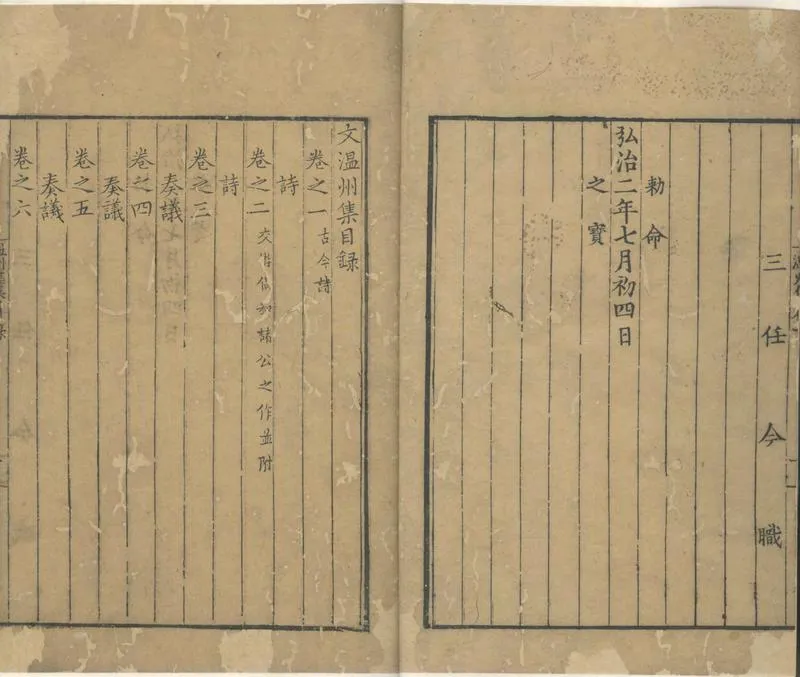 三任今職
勅命
弘治二年七月初四日
之寶
文温州集目録
卷之一古今詩
詩
卷之二交游倡和諸公之作並附
詩
卷之三
奏議
卷之四
奏議
卷之五
奏議
卷之六